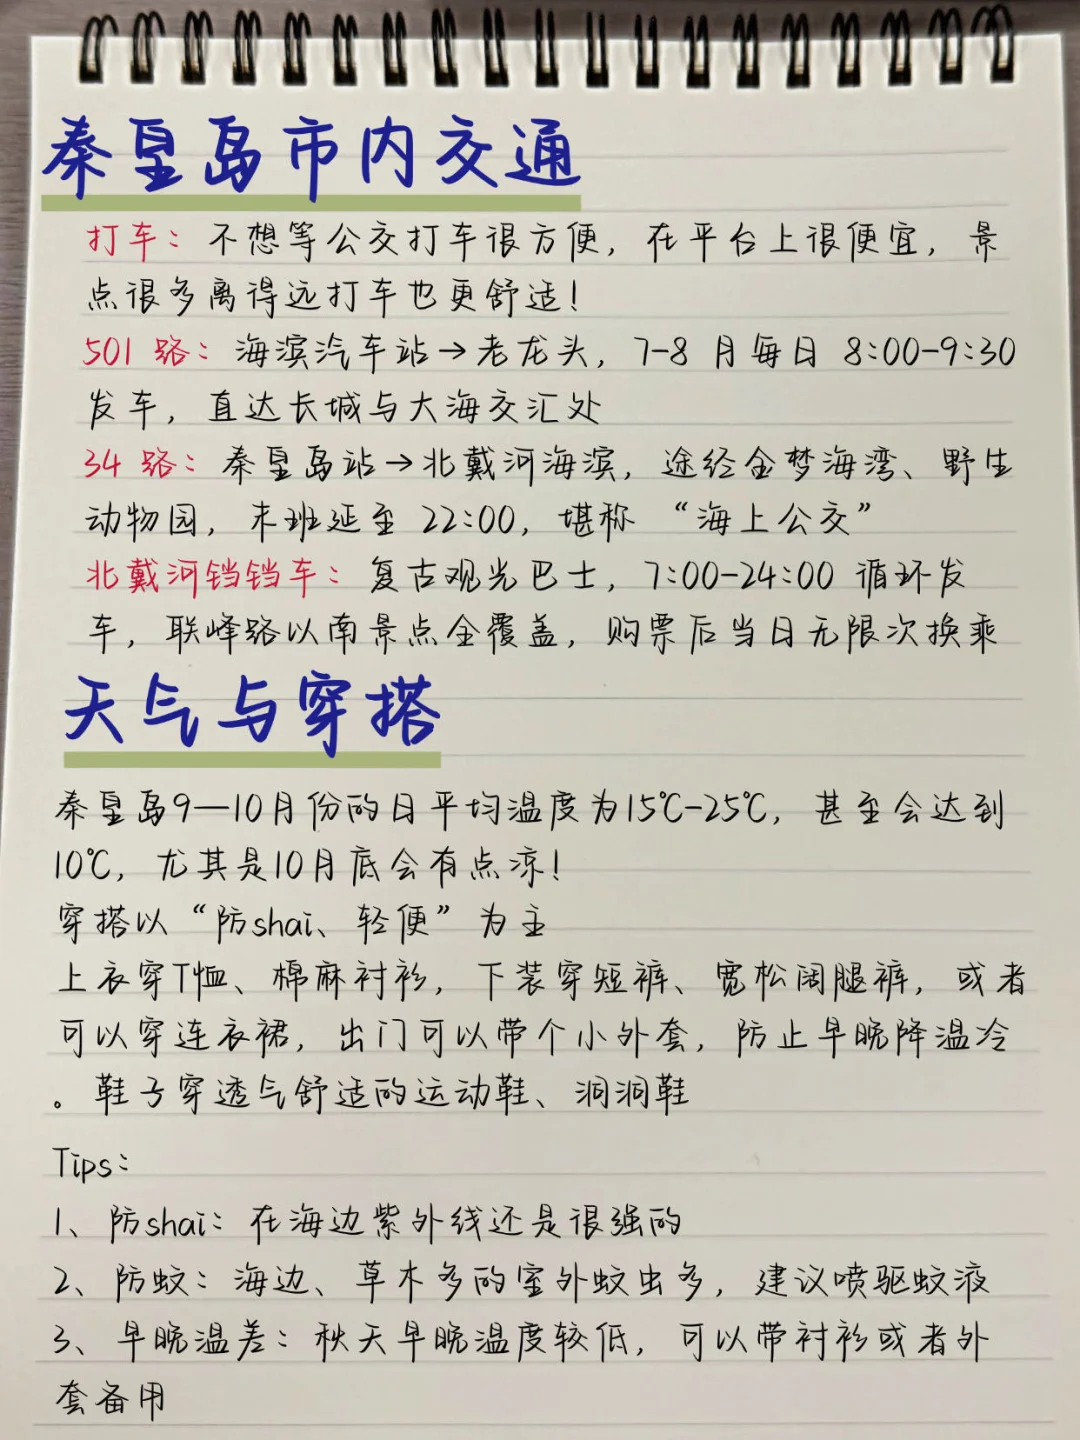 秦皇岛市内交通
打车：不想等公交打车很方便，在平台上很便宜，景
点很多离得远打车也更舒适！
501 路：海滨汽车站→老龙头，7-8 月每日 8:00-9:30
发车，直达长城与大海交汇处
34 路：秦皇岛站→北戴河海滨，途经金梦海湾、野生
动物园，末班延至 22:00，堪称“海上公交”
北戴河铛铛车：复古观光巴士，7:00-24:00 循环发
车，联峰路以南景点全覆盖，购票后当日无限次换乘
天气与穿搭
秦皇岛9—10月份的日平均温度为15℃-25℃，甚至会达到
10℃，尤其是10月底会有点凉！
穿搭以“防shai、轻便”为主
上衣穿T恤、棉麻衬衫，下装穿短裤、宽松阔腿裤，或者
可以穿连衣裙，出门可以带个小外套，防止早晚降温冷
。鞋子穿透气舒适的运动鞋、洞洞鞋
Tips：
1、防shai：在海边紫外线还是很强的
2、防蚊：海边、草木多的室外蚊虫多，建议喷驱蚊液
3、早晚温差：秋天早晚温度较低，可以带衬衫或者外
套备用